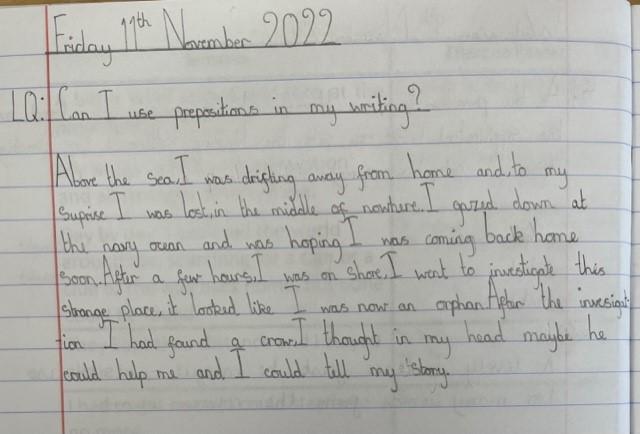 Friday 11th November 2022
LQ: Can I use prepositions in my writing?
Above the sea, I was drifting away from home and, to my
suprise I was lost, in the middle of nowhere. I gazed down at
the navy ocean and was hoping I was coming back home
soon. After a few hours, I was on shore, I went to investigate this
strange place, it looked like I was now an orphan. After the invesigat-
tion I had found a crow, I thought in my head maybe he
could help me and I could tell my story.